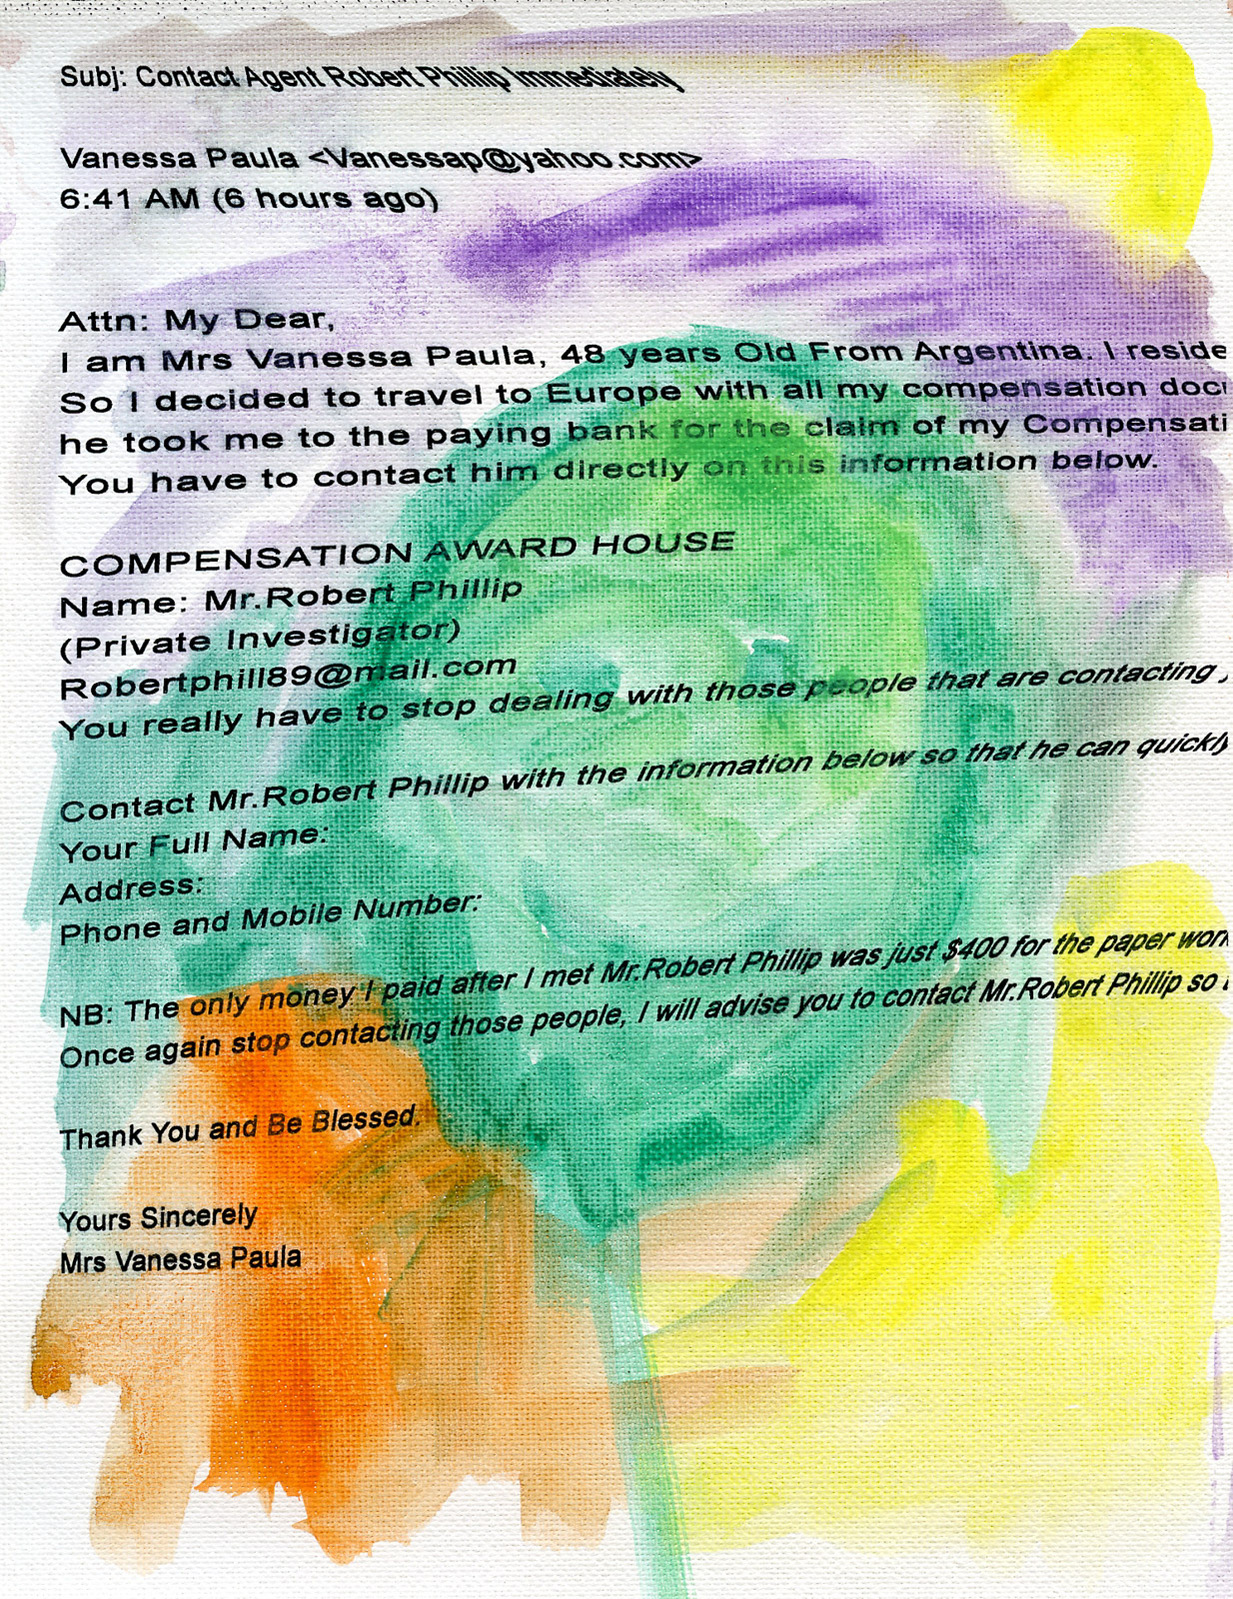 Subj: Contact Agent Robert Phillip Immediately
Vanessa Paula <Vanessap@yahoo.com>
6:41 AM (6 hours ago)
Attn: My Dear,
I am Mrs Vanessa Paula, 48 years Old From Argentina. I reside
So I decided to travel to Europe with all my compensation docu
he took me to the paying bank for the claim of my Compensati
You have to contact him directly on this information below.
COMPENSATION AWARD HOUSE
Name: Mr.Robert Phillip
(Private Investigator)
Robertphill89@mail.com
You really have to stop dealing with those people that are contacting
Contact Mr.Robert Phillip with the information below so that he can quickly
Your Full Name:
Address:
Phone and Mobile Number:
NB: The only money I paid after I met Mr.Robert Phillip was just $400 for the paper work
Once again stop contacting those people, I will advise you to contact Mr.Robert Phillip so
Thank You and Be Blessed.
Yours Sincerely
Mrs Vanessa Paula